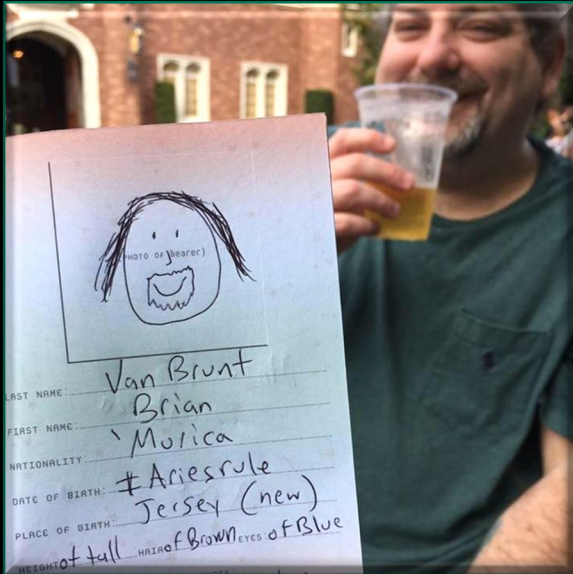 HOTO OF bearer)
LAST NAME: Van Brunt
FIRST NAME: Brian
NATIONALITY: 'Murica
DATE OF BIRTH: #Ariesrule
PLACE OF BIRTH: Jersey (new)
HEIGHT of tall HAIR of Brown EYES: of Blue